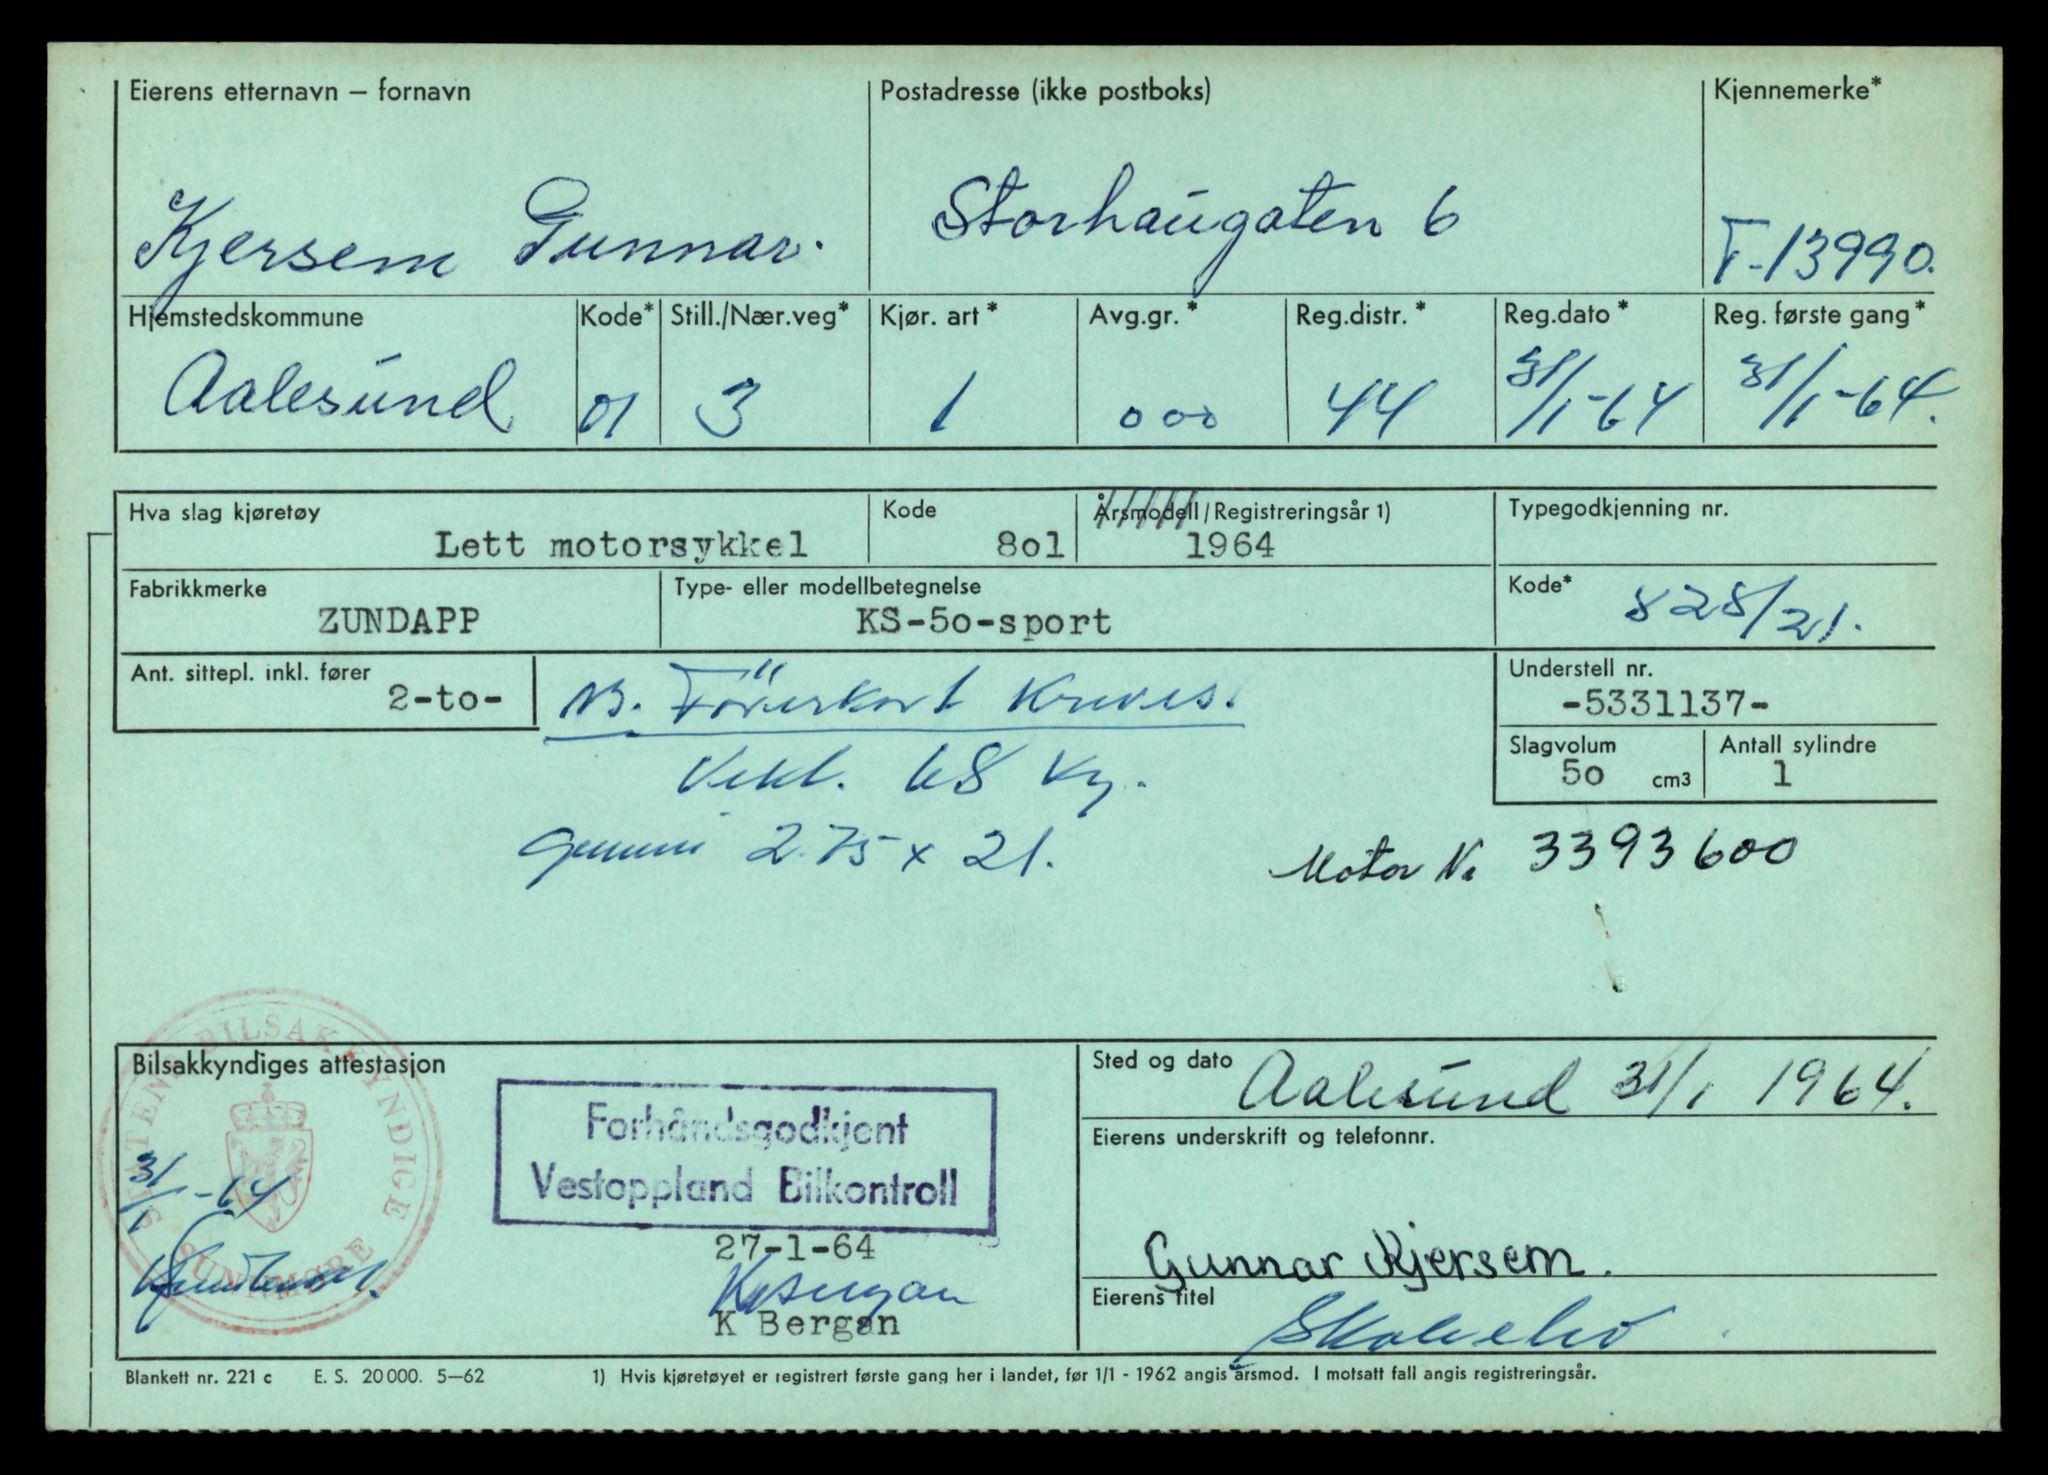 Eierens etternavn – fornavn Postadresse (ikke postboks) Kjennemerke*
Kjersem Gunnar. Storhaugaten 6 T-13990.
Hjemstedskommune Kode* Still./Nær.veg* Kjør. art* Avg.gr.* Reg.distr.* Reg.dato* Reg. første gang*
Aalesund 01 3 1 000 44 31/1-64 31/1-64.
Hva slag kjøretøy Kode Årsmodell/Registreringsår 1) Typegodkjenning nr.
Lett motorsykkel 8o1 1964
Fabrikkmerke Type- eller modellbetegnelse Kode*
ZUNDAPP KS-5o-sport 828/21.
Ant. sittepl. inkl. fører Understell nr.
2-to- NB. Förerkort Kreves. -5331137-
Slagvolum Antall sylindre
5o cm3 1
Vekt. 68 Kg.
Gummi 2.75 x 21. Motor Nr 3393600
STATENS BILSAKKYNDIGE
SUNNMØRE
Bilsakkyndiges attestasjon Sted og dato
Aalesund 31/1 1964.
Forhåndsgodkjent
Vestoppland Bilkontroll
Eierens underskrift og telefonnr.
31/1-64
27-1-64
Gunnar Kjersem.
K Bergan
K Bergan
Eierens titel
Skoleelev
Blankett nr. 221 c E. S. 20 000. 5–62 1) Hvis kjøretøyet er registrert første gang her i landet, før 1/1 - 1962 angis årsmod. I motsatt fall angis registreringsår.